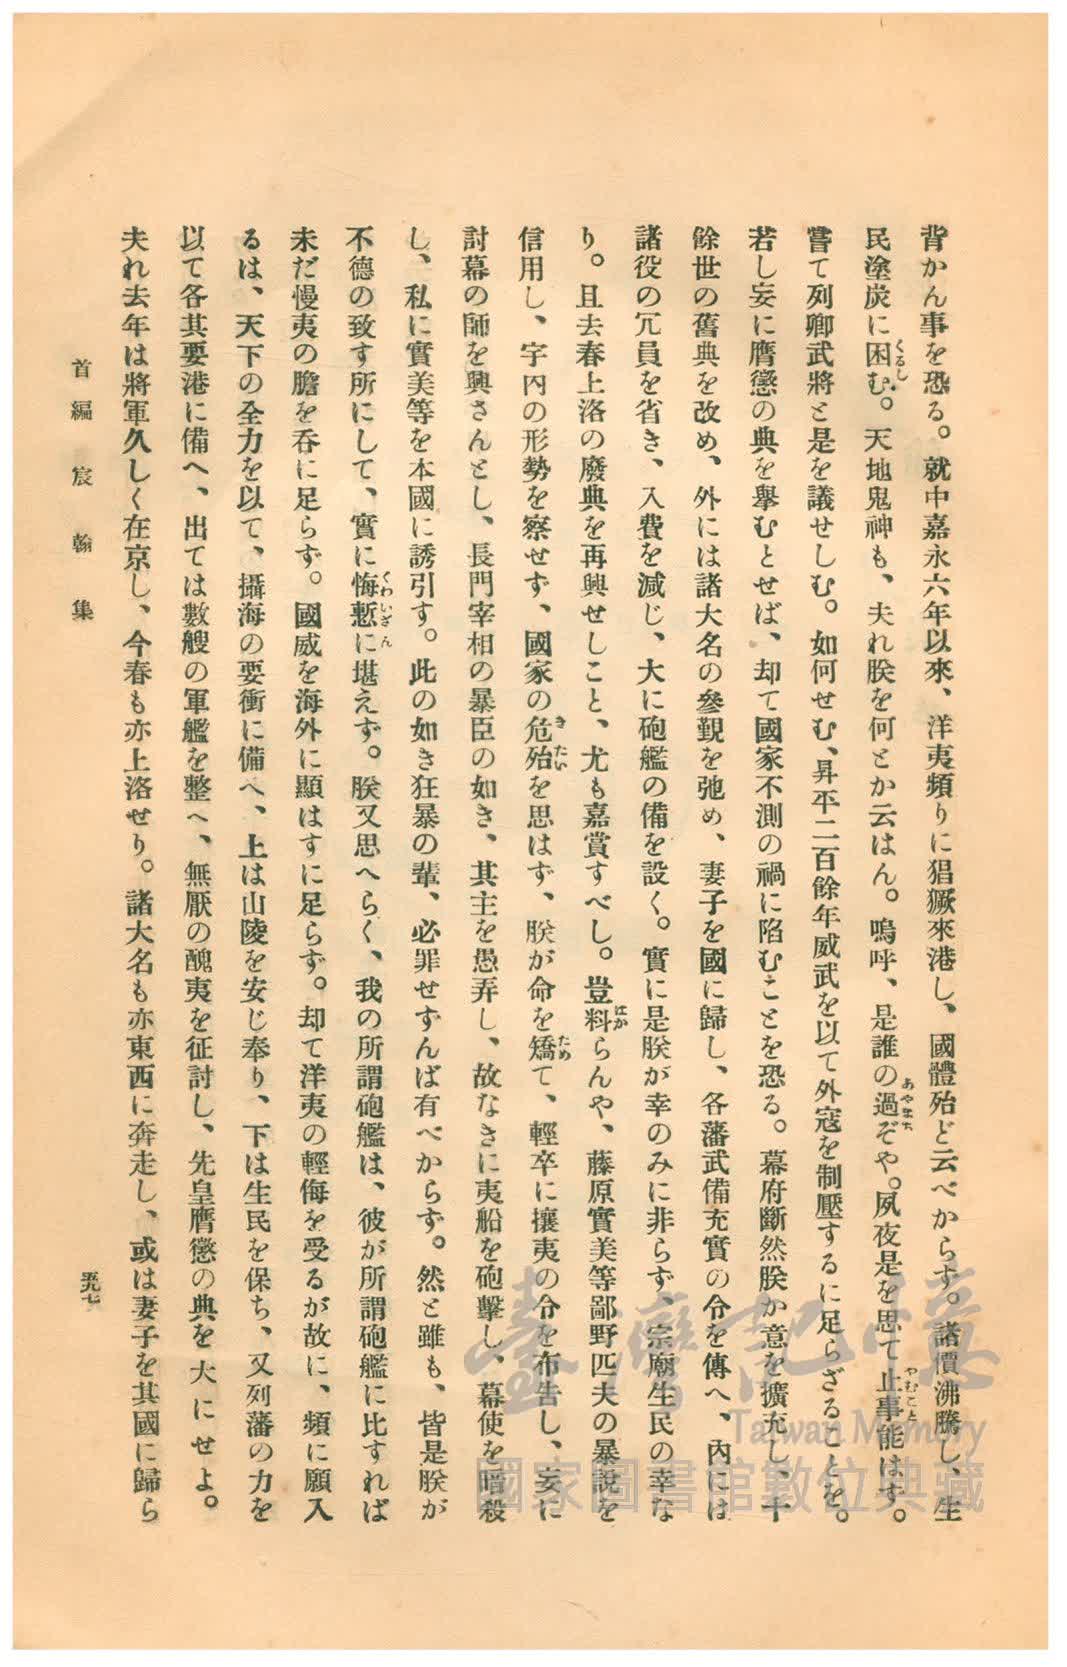 背かん事を恐る。就中嘉永六年以來、洋夷頻りに猖獗來港し、國體殆ど云べからず。諸價沸騰し、生
民塗炭に困む。天地鬼神も、夫れ朕を何とか云はん。嗚呼、是誰の過ぞや。夙夜是を思て止事能はず。
嘗て列卿武將と是を議せしむ。如何せむ、昇平二百餘年威武を以て外寇を制壓するに足らざることを。
若し妄に膺懲の典を擧むとせば、却て國家不測の禍に陷むことを恐る。幕府斷然朕か意を擴充し、十
餘世の舊典を改め、外には諸大名の參覲を弛め、妻子を國に歸し、各藩武備充實の令を傳へ、內には
諸役の冗員を省き、入費を減じ、大に砲艦の備を設く。實に是朕が幸のみに非らず、宗廟生民の幸な
り。且去春上洛の廢典を再興せしこと、尤も嘉賞すべし。豈料らんや、藤原實美等鄙野匹夫の暴說を
信用し、宇內の形勢を察せず、國家の危殆を思はず、朕が命を矯て、輕卒に攘夷の令を布告し、妄に
討幕の師を興さんとし、長門宰相の暴臣の如き、其主を愚弄し、故なきに夷船を砲擊し、幕使を暗殺
し、私に實美等を本國に誘引す。此の如き狂暴の輩、必罪せずんば有べからず。然と雖も、皆是朕が
不德の致す所にして、實に悔慙に堪えず。朕又思へらく、我の所謂砲艦は、彼が所謂砲艦に比すれば
未だ慢夷の膽を呑に足らず。國威を海外に顯はすに足らず。却て洋夷の輕侮を受るが故に、頻に願入
るは、天下の全力を以て、攝海の要衝に備へ、上は山陵を安じ奉り、下は生民を保ち、又列藩の力を
以て各其要港に備へ、出ては數艘の軍艦を整へ、無厭の醜夷を征討し、先皇膺懲の典を大にせよ。
夫れ去年は將軍久しく在京し、今春も亦上洛せり。諸大名も亦東西に奔走し、或は妻子を其國に歸ら
首編 宸翰集
五九七
くるし
あやまち
やむこと
はか
き たい
ため
くわいざん
臺灣記憶
Taiwan Memory
國家圖書館數位典藏